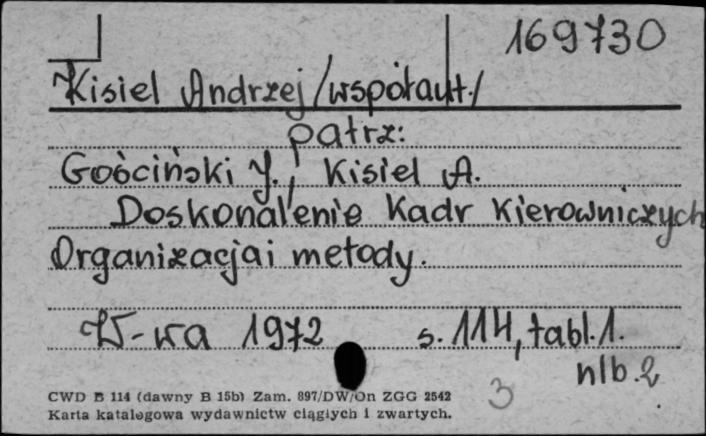 169730
Kisiel Andrzej /współaut./
patrz:
Gościński J., Kisiel A.
Doskonalenie Kadr Kierowniczych
Organizacja i metody.
W-wa 1972 s. 114, tabl. 1.
nlb. 2
3
CWD B 114 (dawny B 15b) Zam. 897/DW/On ZGG 2542
Karta katalogowa wydawnictw ciągłych i zwartych.